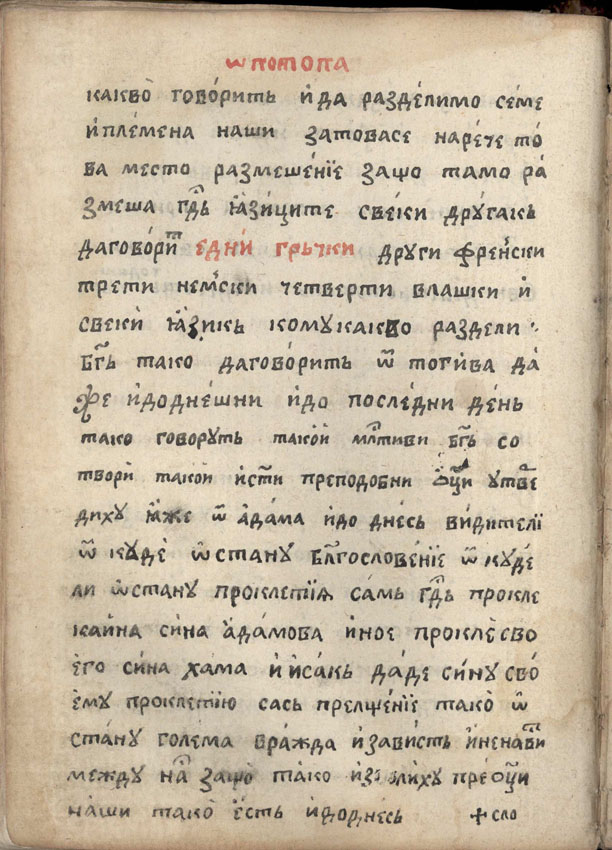 ѿ потопа
какво̀ говѡ́рить и҆ да разде́лимо се́ме
и҆ пле́мена наши затовасе наре́че то́
ва место размеше́нїе защо тамо ра́
змеша гд҃ь ꙗ҆зи́ците свеки дрꙋ́гакь
даговѡ́рит едни́ грьчки дрꙋги френ́ски
трети нем́ски четверти влашки и҆
свеки́ ꙗ҆зикь комꙋкакво раздели ·:
бг҃ь тако даговѡ́рить ѿ тоги́ва да́
же и҆додне́шни и҆до после́дни де́нь
тако говорꙋть тако́й мл҃тиви бг҃ь со
твори̇ такой и҆сти преподобни ѻц҃и ꙋтве
дихꙋ ꙗ҆́же ѿ а҆да́ма и҆до дне́сь ви́дителї
ѿ кꙋдѐ ѡ҆станꙋ́ бл҃гослове́нїе ѿ кꙋде́
ли ѡ҆станꙋ проклетїѧ са́мь гд҃ь прокле
каи́на си́на а҆да́мова и҆ное прокле̇ сво
его си́на ха́ма и҆ и҆са́кь да́де си́нꙋ сво́
е́мꙋ проклетїю сась прелще́нїе тако̀ ѿ
ста́нꙋ голе́ма вра́жда и҆ за́висть и҆ нена́ви
междꙋ на҃ защо̀ та́ко прео҆ц҃и
на́ши тако̀ е҆́сть и҆до дне́сь ✢ сло